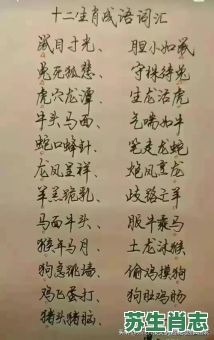 十二生肖成语词汇
鼠目寸光、 胆小如鼠
兔死狐悲、 守株待兔
虎穴龙潭、 生龙活虎
牛头马面、 气喘如牛
蛇口蜂针、 笔走龙蛇
龙凤呈祥、 炮凤烹龙
羊羔跪乳、 歧路亡羊
马面牛头、 服牛乘马
猴年马月、 土龙沐猴
狗急跳墙、 偷鸡摸狗
鸡飞蛋打、 狗肚鸡肠
猪头猪脑、
苏生肖志